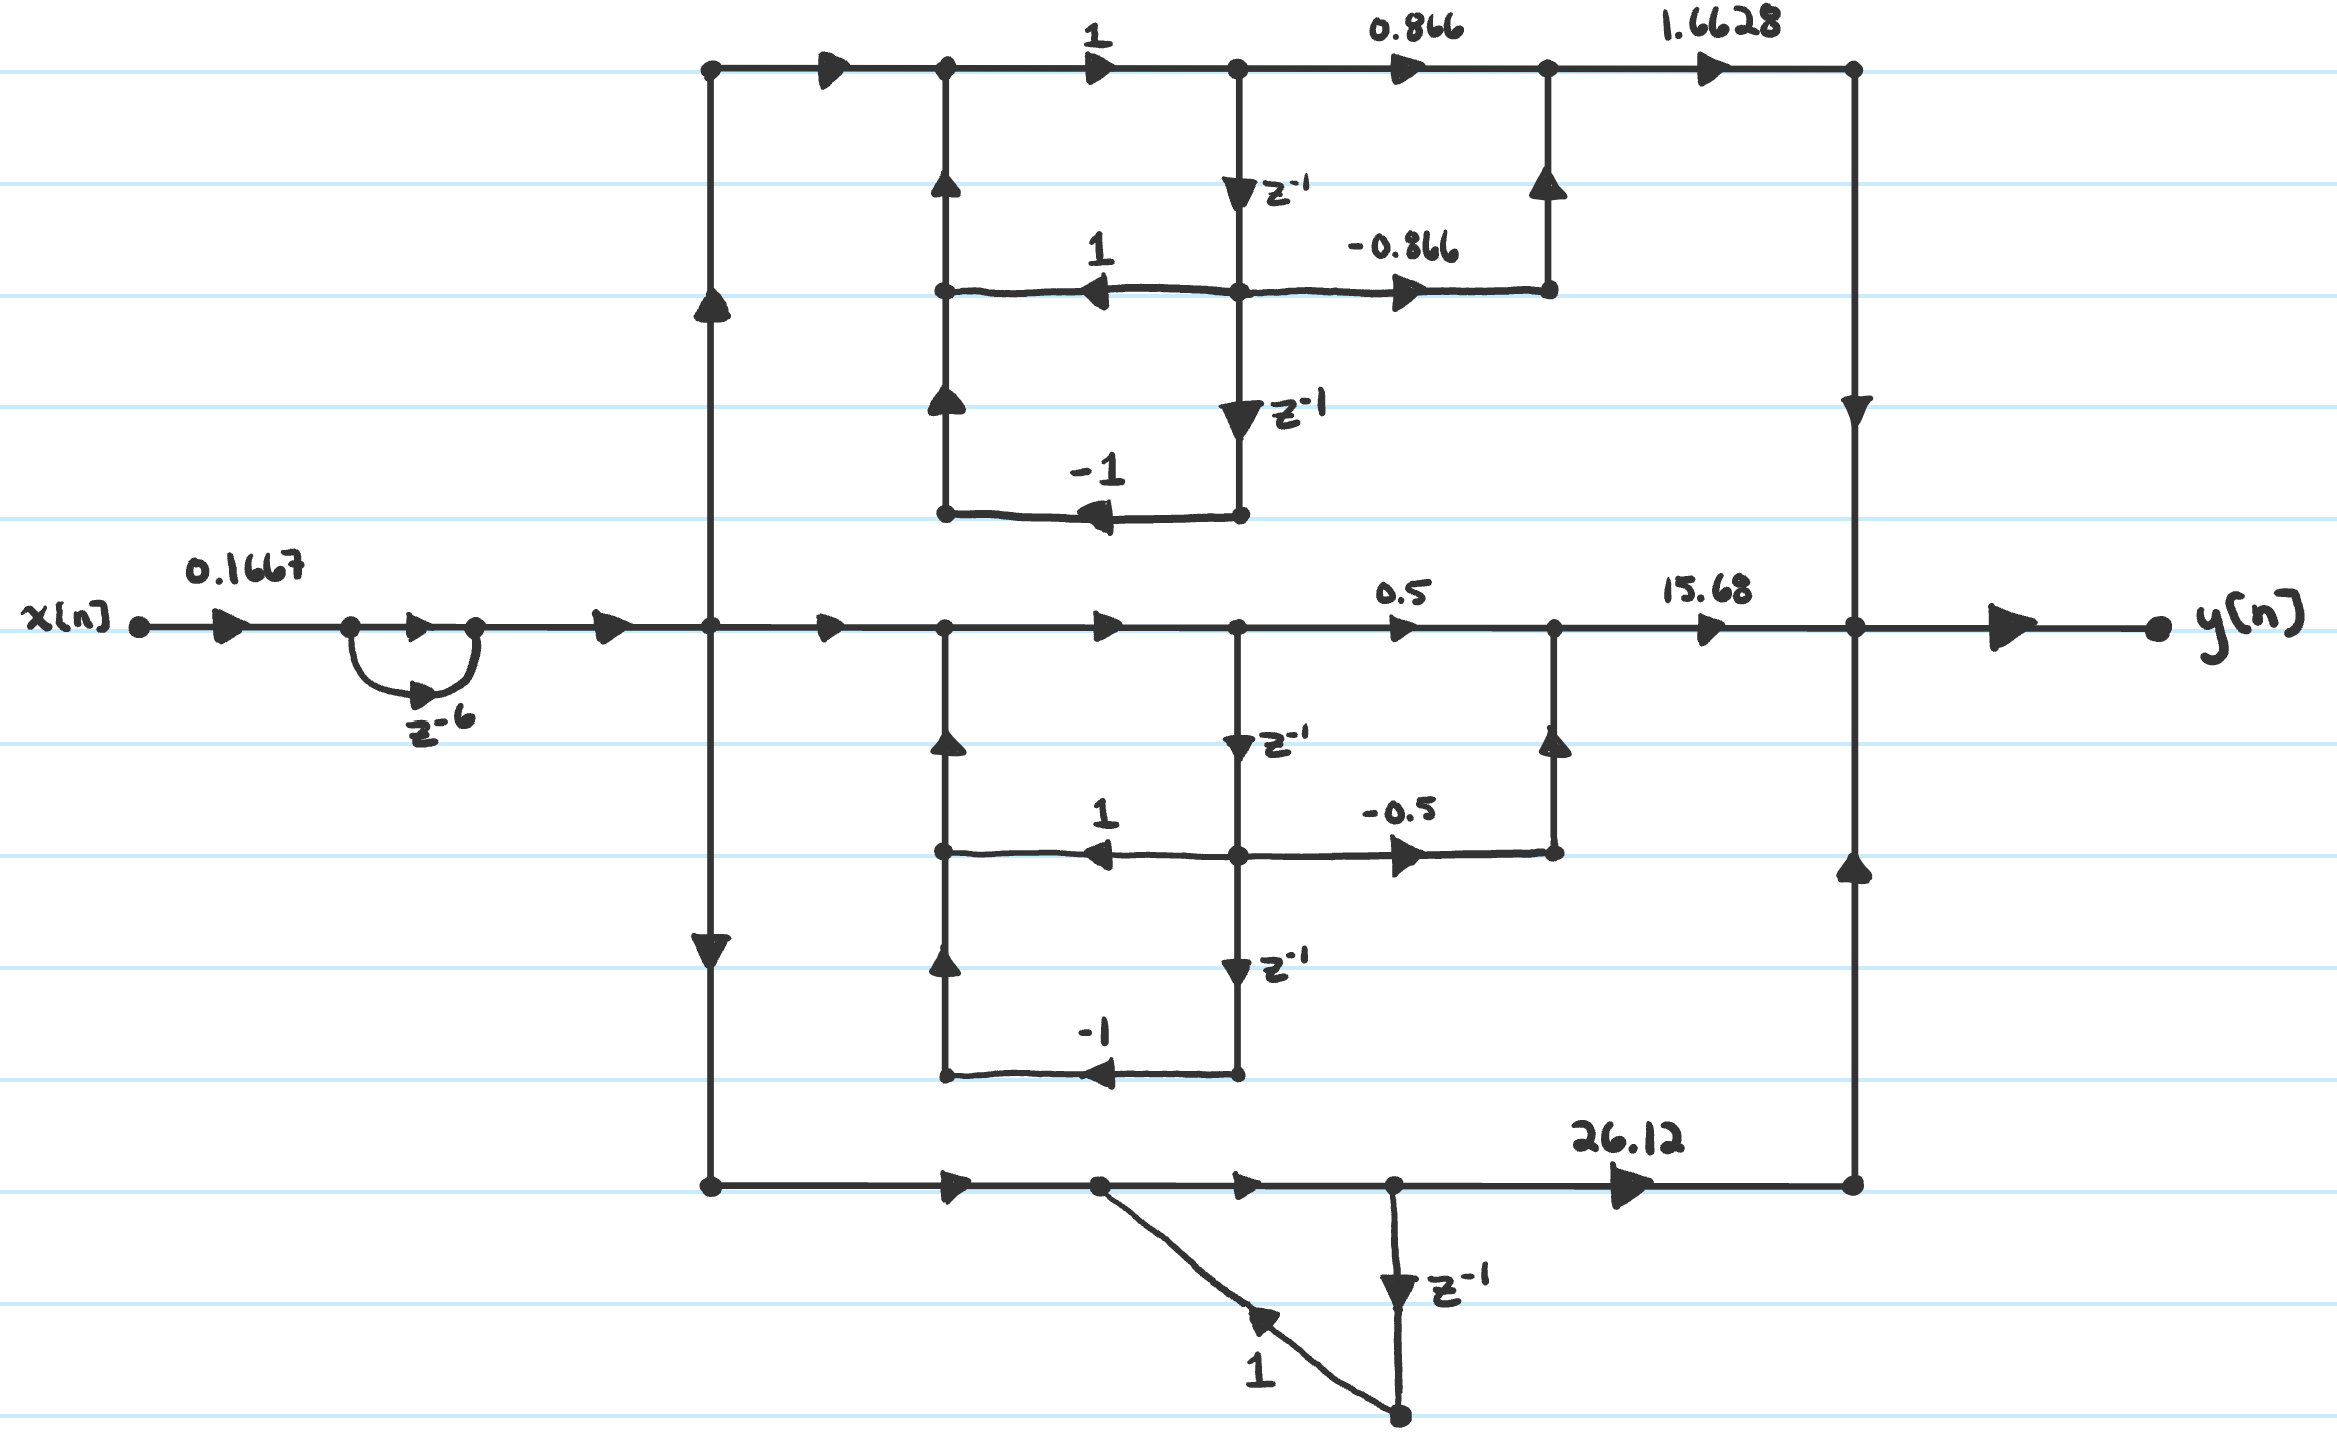 1
0.866
1.6628
z⁻¹
1
-0.866
z⁻¹
-1
0.1667
x[n]
z⁻⁶
0.5
15.68
y[n]
z⁻¹
1
-0.5
z⁻¹
-1
26.12
z⁻¹
1